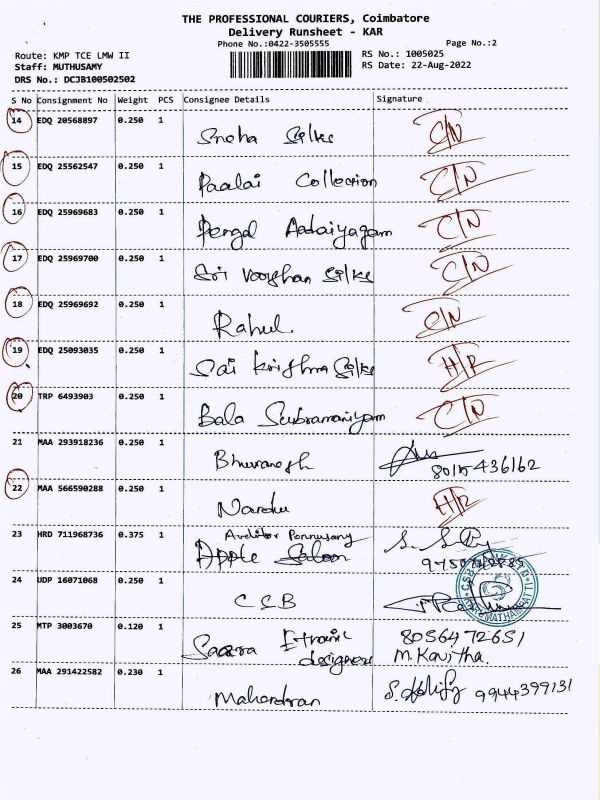 THE PROFESSIONAL COURIERS, Coimbatore
Delivery Runsheet - KAR
Phone No.:0422-3505555 Page No.:2
Route: KMP TCE LMW II RS No.: 1005025
Staff: MUTHUSAMY RS Date: 22-Aug-2022
DRS No.: DCJB100502502
S No Consignment No Weight PCS Consignee Details Signature
14 EDQ 20568897 0.250 1 Sneha Silks C/N
15 EDQ 25562547 0.250 1 Paalai Collection C/N
16 EDQ 25969683 0.250 1 Aadaiyagam C/N
17 EDQ 25969700 0.250 1 Sri Silks C/N
18 EDQ 25969692 0.250 1 Rahul C/N
19 EDQ 25093035 0.250 1 Sai Krishna Silks H/R
20 TRP 6493903 0.250 1 Bala Subramaniyam C/N
21 MAA 293918236 0.250 1 Bhuvanesh
22 MAA 566590288 0.250 1 Nandu H/R
23 HRD 711968736 0.375 1 Auditor Ponnusamy
Apple Saloon
24 UDP 16071068 0.250 1 CSB
25 MTP 3003670 0.120 1 Saara designers 8056472651
M. Kavitha.
26 MAA 291422582 0.230 1 Mahendran 9944399131